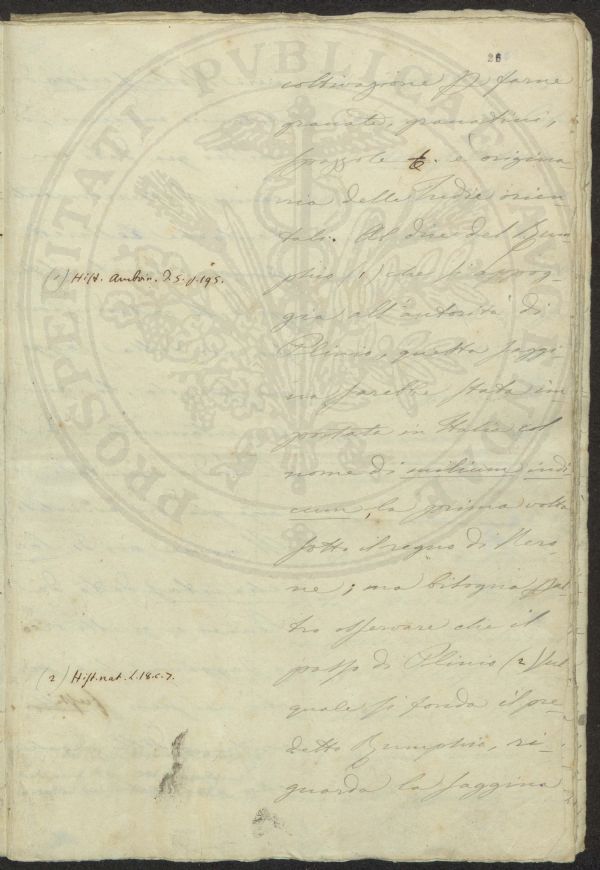 26
coltivazione p farne
granate, granatini,
spazzole &. e origina-
ria delle Indie orien-
tali. Al dire del Rum-
phio (1) che si appog-
gia all'autorità di
Plinio, questa saggi-
na sarebbe stata im-
portata in Italia col
nome di milium indi
cum, la prima volta
sotto il regno di Nero-
ne; ma bisogna pal-
tro osservare che il
passo di Plinio (2) sul
quale si fonda il pre-
detto Rumphio, ri-
guarda la saggina
(1) Hist. Amboin. T. 5. p. 195.
(2) Hist. nat. L. 18. c. 7.
PROSPERITATI PVBLICAE